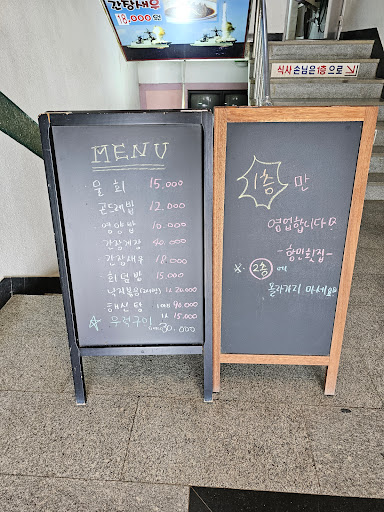 간장새우
18,000원
식사 손님은 1층으로
MENU
물 회 15.000
곤드레밥 12.000
영양밥 10.000
간장게장 40.000
간장새우 18.000
회덮밥 15.000
낙지볶음(2인이상) 1人 20.000
해신탕 1人 40.000
☆ 우럭구이 1人 15.000
30.000
1층 만
영업합니다
-항만횟집-
※ 2층 에
올라가지 마세요